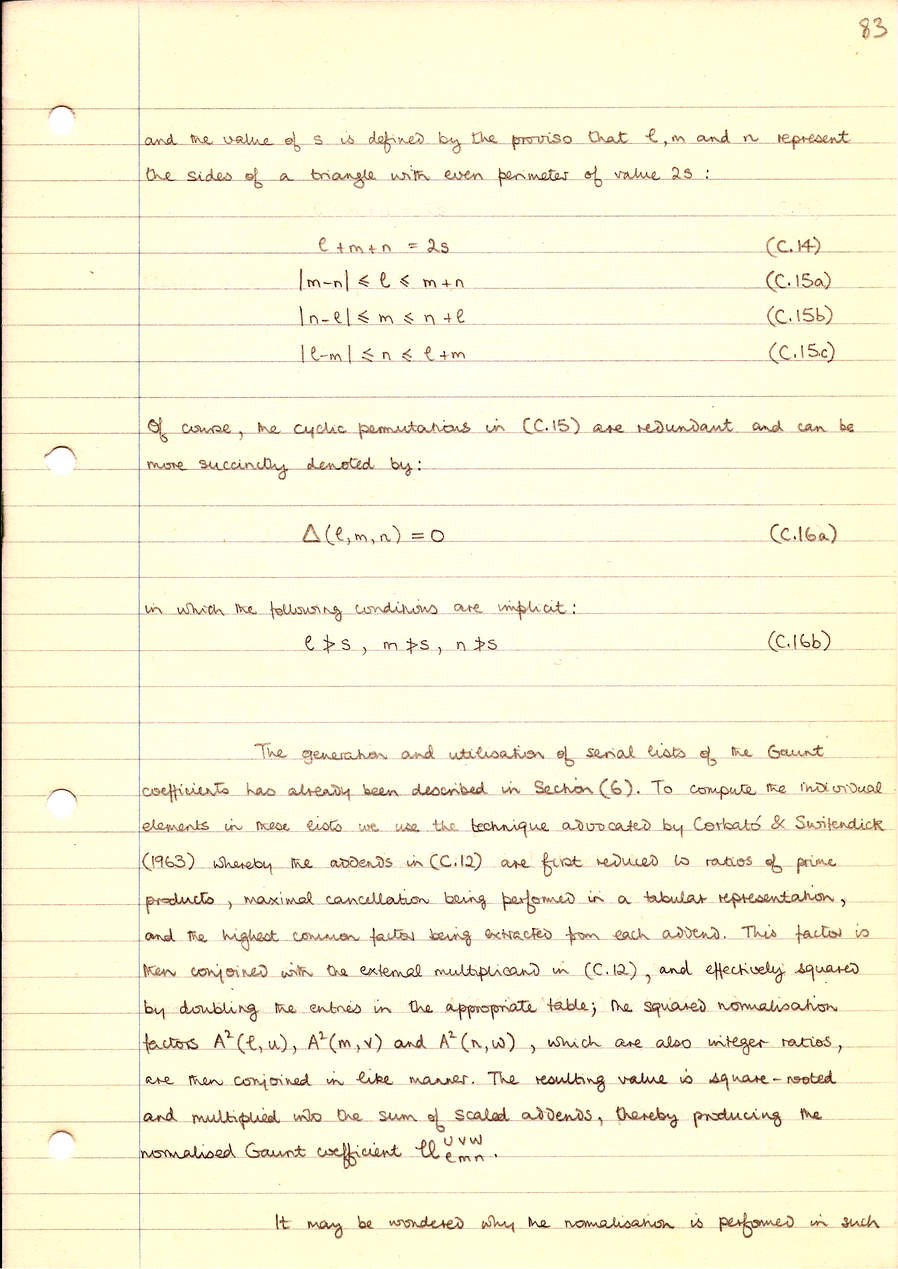 83
and the value of s is defined by the proviso that ℓ, m and n represent
the sides of a triangle with even perimeter of value 2s :
ℓ + m + n = 2s (C.14)
|m-n| ⩽ ℓ ⩽ m+n (C.15a)
|n-ℓ| ⩽ m ⩽ n+ℓ (C.15b)
|ℓ-m| ⩽ n ⩽ ℓ+m (C.15c)
Of course, the cyclic permutations in (C.15) are redundant and can be
more succinctly denoted by :
Δ(ℓ, m, n) = 0 (C.16a)
in which the following conditions are implicit :
ℓ ≯ s , m ≯ s , n ≯ s (C.16b)
The generation and utilisation of serial lists of the Gaunt
coefficients has already been described in Section (6). To compute the individual
elements in these lists we use the technique advocated by Corbató & Switendick
(1963) whereby the addends in (C.12) are first reduced to ratios of prime
products , maximal cancellation being performed in a tabular representation,
and the highest common factor being extracted from each addend. This factor is
then conjoined with the external multiplicand in (C.12), and effectively squared
by doubling the entries in the appropriate table; the squared normalisation
factors A²(ℓ, u), A²(m, v) and A²(n, w) , which are also integer ratios,
are then conjoined in like manner. The resulting value is square-rooted
and multiplied into the sum of scaled addends, thereby producing the
normalised Gaunt coefficient 𝒰 ᵘᵛʷ ℓmn .
It may be wondered why the normalisation is performed in such